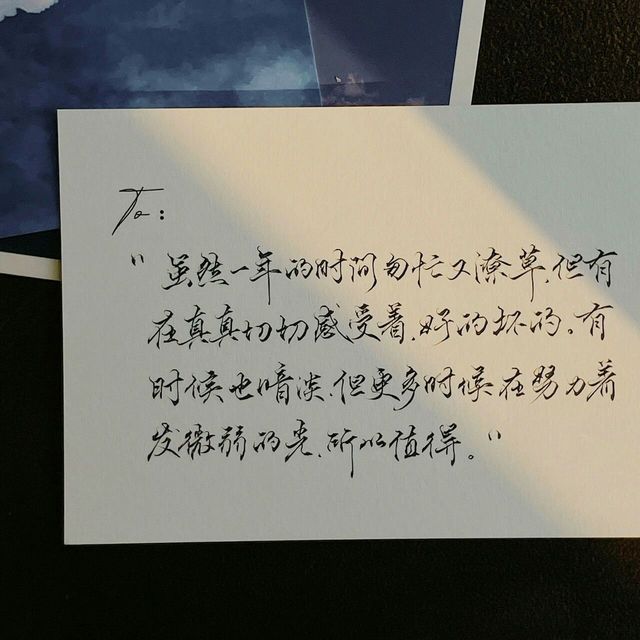 To:
"虽然一年的时间匆忙又潦草,但有
在真真切切感受着,好的坏的。有
时候也暗淡,但更多时候在努力着
发微弱的光,所以值得。"